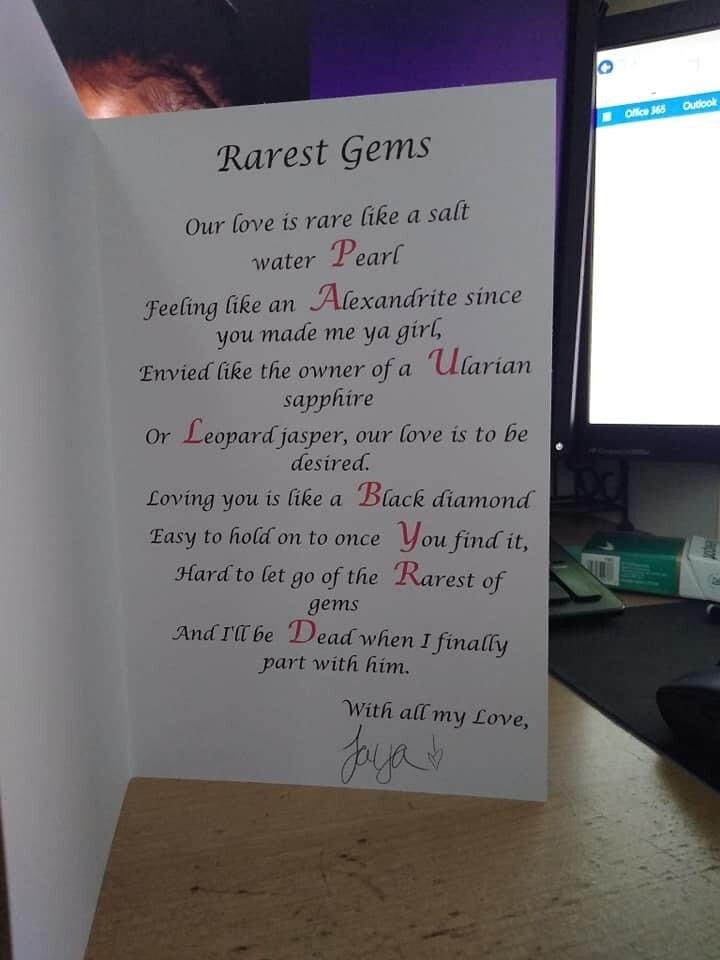 Rarest Gems
Our love is rare like a salt
water Pearl
Feeling like an Alexandrite since
you made me ya girl,
Envied like the owner of a Ularian
sapphire
Or Leopard jasper, our love is to be
desired.
Loving you is like a Black diamond
Easy to hold on to once You find it,
Hard to let go of the Rarest of
gems
And I'll be Dead when I finally
part with him.
With all my Love,
Jaya
Office 365 Outlook